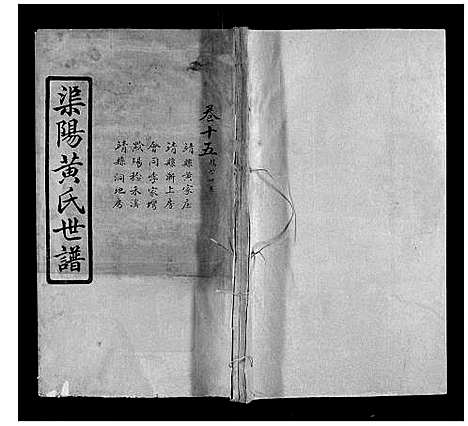 渠陽黃氏世譜
卷十五
靖縣黃家庄
靖縣新上房
會同李家塝
黔陽稔禾溪
靖縣洞地房